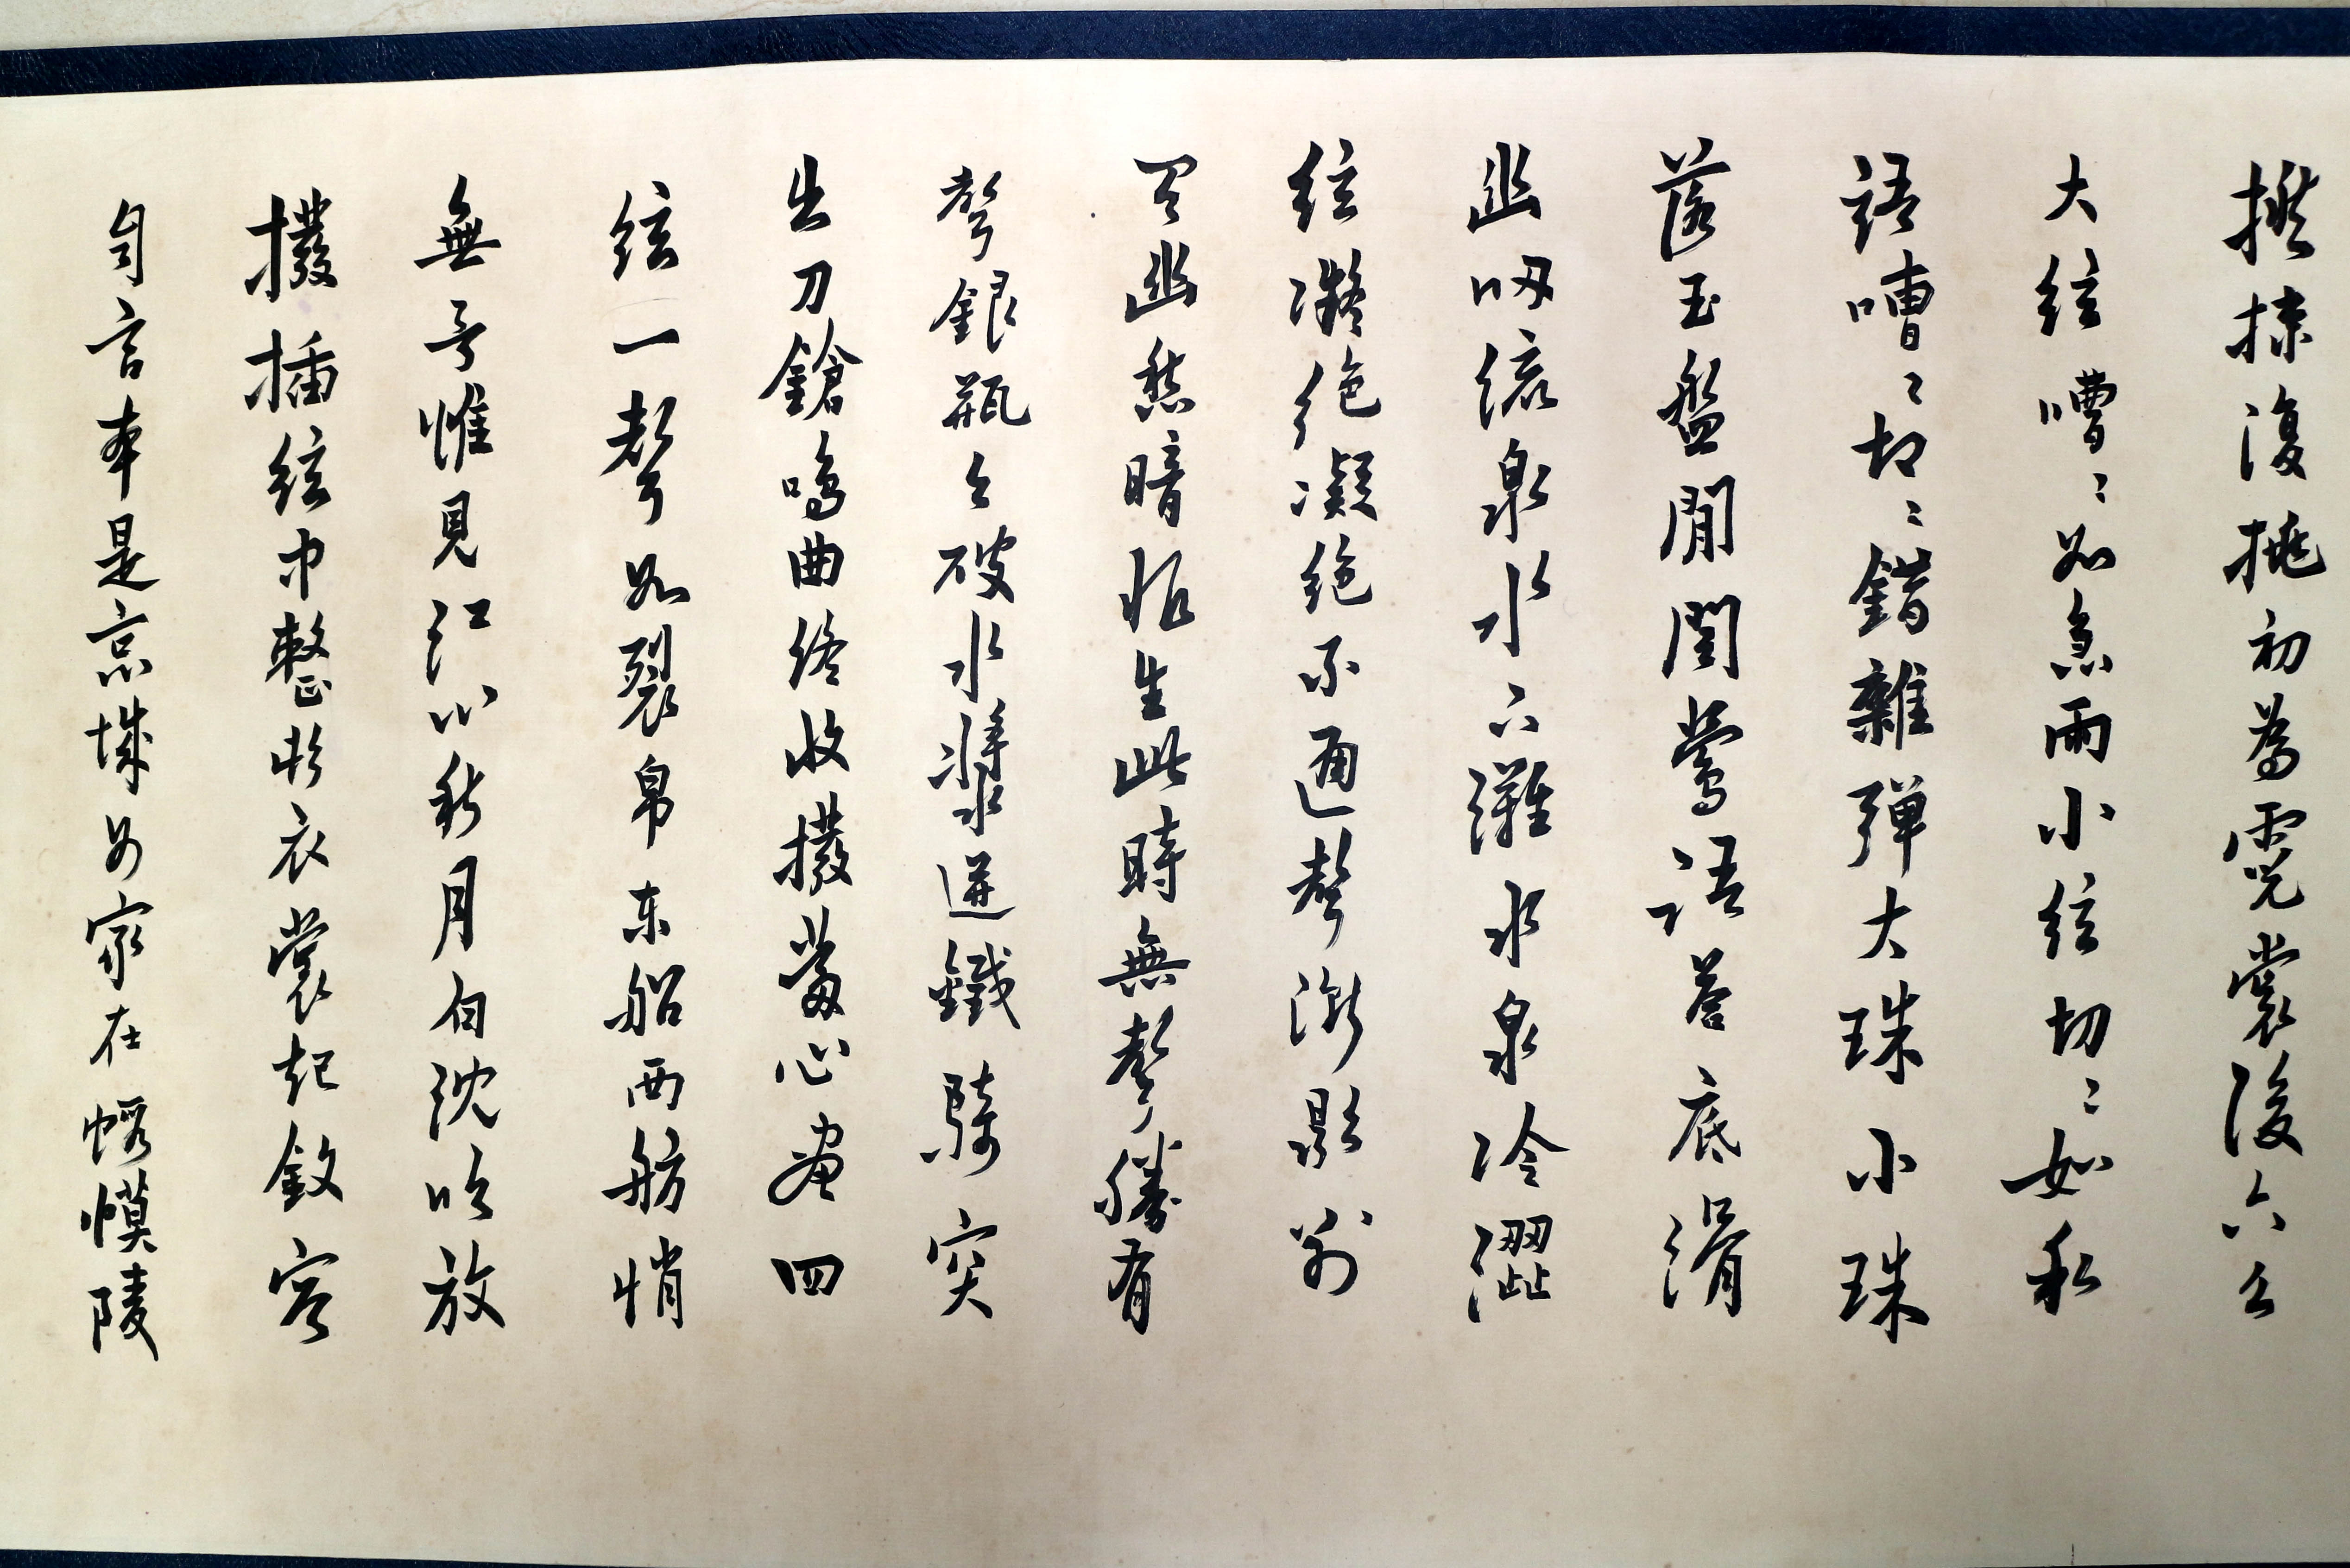 撚抹復挑初為霓裳後六么
大絃嘈〻如急雨小絃切〻如私
語嘈〻切〻錯雜彈大珠小珠
落玉盤間關鶯語花底滑
幽咽流泉水下灘水泉冷澀
絃凝絕凝絕不通聲漸歇別
有幽愁暗恨生此時無聲勝有
聲銀瓶乍破水漿迸鐵騎突
出刀鎗鳴曲終收撥當心畫四
絃一聲如裂帛東船西舫悄
無言惟見江心秋月白沈吟放
撥插絃中整頓衣裳起斂容
自言本是京城女家在蝦蟆陵